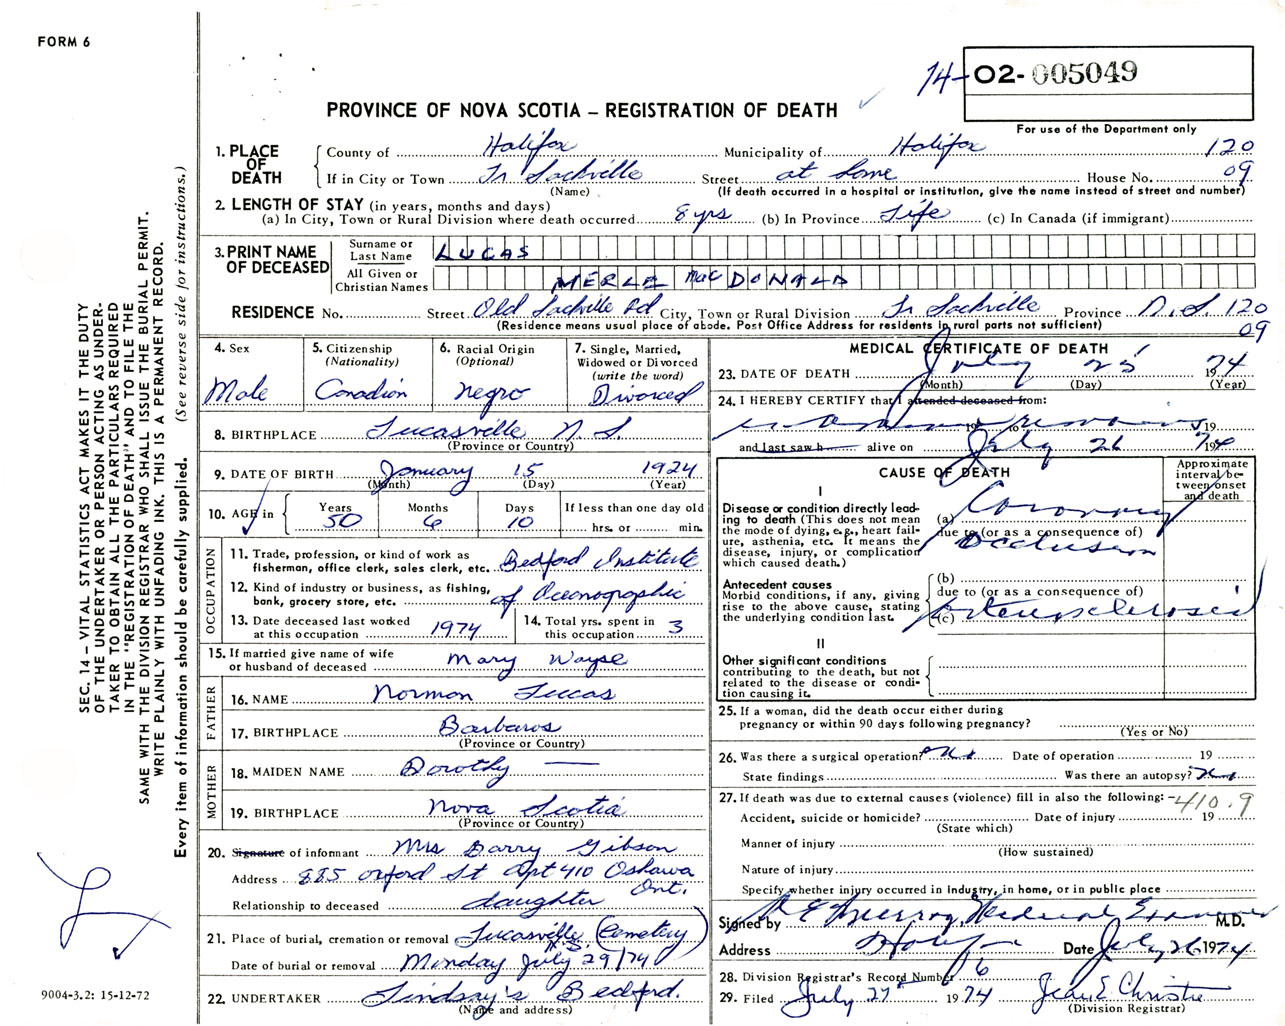 FORM 6
74- O2- 005049
PROVINCE OF NOVA SCOTIA – REGISTRATION OF DEATH
For use of the Department only
1. PLACE OF DEATH County of Halifax Municipality of Halifax 120
If in City or Town Lr Sackville Street at home House No. 09
(Name) (If death occurred in a hospital or institution, give the name instead of street and number)
2. LENGTH OF STAY (in years, months and days)
(a) In City, Town or Rural Division where death occurred 8 yrs (b) In Province Life (c) In Canada (if immigrant)
3. PRINT NAME OF DECEASED Surname or Last Name LUCAS
All Given or Christian Names MERLE MacDONALD
RESIDENCE No. Street Old Sackville Rd City, Town or Rural Division Lr Sackville Province N.S. 120
(Residence means usual place of abode. Post Office Address for residents in rural parts not sufficient) 09
4. Sex Male
5. Citizenship (Nationality) Canadian
6. Racial Origin (Optional) Negro
7. Single, Married, Widowed or Divorced (write the word) Divorced
8. BIRTHPLACE Lucasville N.S.
(Province or Country)
9. DATE OF BIRTH January 15 1924
(Month) (Day) (Year)
10. AGE in Years 50 Months 6 Days 10 If less than one day old hrs. or min.
OCCUPATION
11. Trade, profession, or kind of work as fisherman, office clerk, sales clerk, etc. Bedford Institute
12. Kind of industry or business, as fishing, bank, grocery store, etc. of Oceonographic
13. Date deceased last worked at this occupation 1974
14. Total yrs. spent in this occupation 3
15. If married give name of wife or husband of deceased Mary Wayse
FATHER
16. NAME Norman Lucas
17. BIRTHPLACE Barbaros
(Province or Country)
MOTHER
18. MAIDEN NAME Dorothy —
19. BIRTHPLACE Nova Scotia
(Province or Country)
20. Signature of informant Mrs Barry Gibson
Address 885 Oxford St Apt 410 Oshawa Ont.
Relationship to deceased daughter
21. Place of burial, cremation or removal Lucasville N.S. (Cemetery)
Date of burial or removal Monday July 29/74
22. UNDERTAKER Lindsay's Bedford.
(Name and address)
MEDICAL CERTIFICATE OF DEATH
23. DATE OF DEATH July 25 1974
(Month) (Day) (Year)
24. I HEREBY CERTIFY that I attended deceased from:
19 to 19
and last saw h alive on July 26 1974
CAUSE OF DEATH
Approximate interval between onset and death
I
Disease or condition directly leading to death (This does not mean the mode of dying, e.g., heart failure, asthenia, etc. It means the disease, injury, or complication which caused death.)
(a) Coronary
due to (or as a consequence of)
Occlusion
Antecedent causes
Morbid conditions, if any, giving rise to the above cause, stating the underlying condition last.
(b)
due to (or as a consequence of)
(c) arteriosclerosis
II
Other significant conditions contributing to the death, but not related to the disease or condition causing it.
25. If a woman, did the death occur either during pregnancy or within 90 days following pregnancy?
(Yes or No)
26. Was there a surgical operation? No Date of operation 19
State findings Was there an autopsy? No
27. If death was due to external causes (violence) fill in also the following: - 410.9
Accident, suicide or homicide? Date of injury 19
(State which)
Manner of injury
(How sustained)
Nature of injury
Specify whether injury occurred in industry, in home, or in public place
Signed by Murray, Medical Examiner M.D.
Address Halifax Date July 26 1974
28. Division Registrar's Record Number 16
29. Filed July 27 1974 Jean E. Christie
(Division Registrar)
SEC. 14 – VITAL STATISTICS ACT MAKES IT THE DUTY
OF THE UNDERTAKER OR PERSON ACTING AS UNDER-
TAKER TO OBTAIN ALL THE PARTICULARS REQUIRED
IN THE "REGISTRATION OF DEATH" AND TO FILE THE
SAME WITH THE DIVISION REGISTRAR WHO SHALL ISSUE THE BURIAL PERMIT.
WRITE PLAINLY WITH UNFADING INK. THIS IS A PERMANENT RECORD.
Every item of information should be carefully supplied. (See reverse side for instructions.)
9004-3.2: 15-12-72